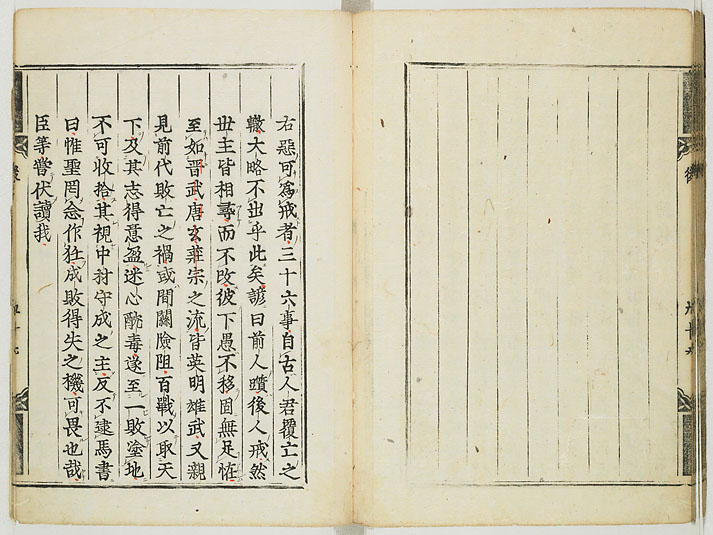 右惡可爲戒者三十六事自古人君覆亡之
轍大略不出乎此矣諺曰前人躓後人戒然
世主皆相尋而不改彼下愚不移固無足恠
至如晉武唐玄莊宗之流皆英明雄武又親
見前代敗亡之禍或間關險阻百戰以取天
下及其志得意盈迷心酖毒遂至一敗塗地
不可收拾其視中材守成之主反不逮焉書
曰惟聖罔念作狂成敗得失之機可畏也哉
臣等嘗伏讀我